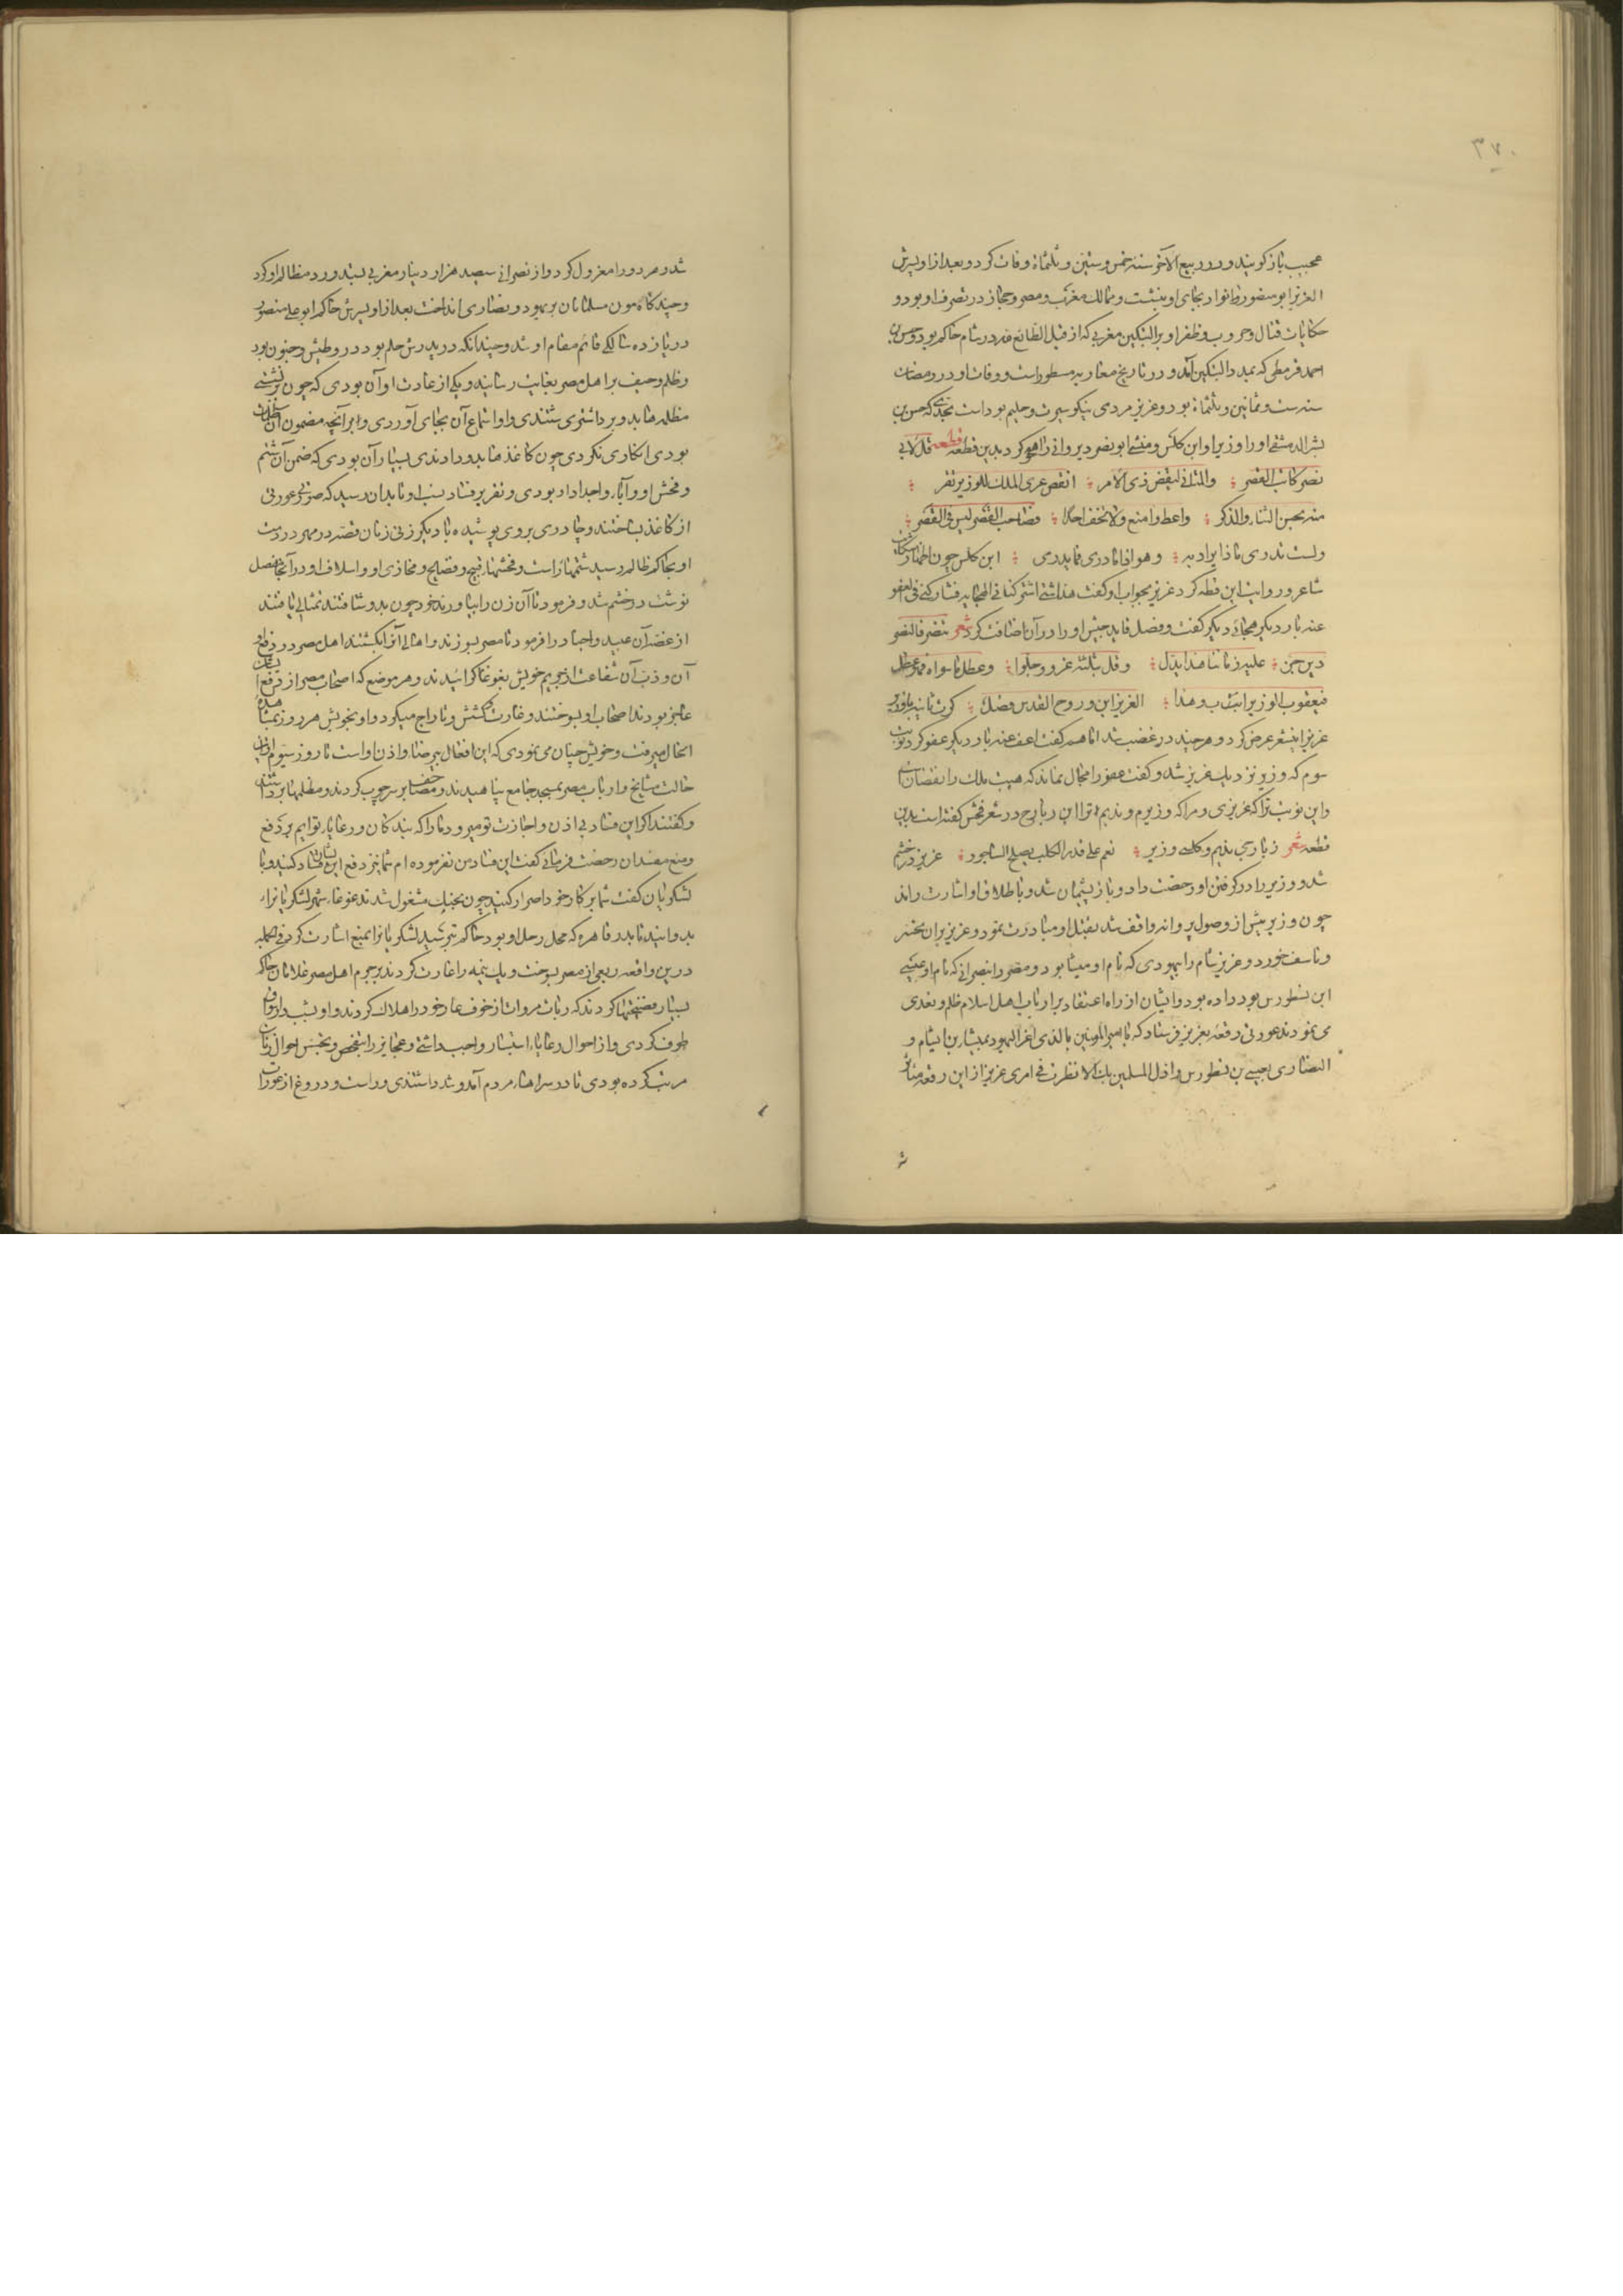 ۳۷۰
عجیب باز کویند و در ربیع الآخر سنه خمس و ستین و ثلثمائة وفات کرد و بعد از او پسرش
العزیز ابو منصور نزار بجای او بنشست و ممالک مغرب و مصر و حجاز در تصرف او بود و
حکایات قتال و حروب و ظفر او بر البتکین مغربی که از قبل الطائع لله در شام حاکم بود و حسن بن
احمد قرمطی که بمدد البتکین آمد و در تاریخ مغاربه مسطور است و وفات او در رمضان
سنه ست و ثمانین و ثلثمائة بود و عزیز مردی نیکو سیرت و حلیم بود است بحدی که حسن بن
بشر الدمشقی او را و زیر او ابن کلس و منشی ابو نصر دیروانی را هجو کرد بدین قطعه قطعه قل لابی
نصر کاتب القصر والمتانی لنقض ذی الامر انقض عری الملک للوزیر تفز
منه بحسن الثناء والذکر واعط وامنع ولا تخف احدا فصاحب القصر لیس فی القصر
ولیس یدری ماذا یراد به وهو اذا ما دری فما یدری ابن کلس چون شکایت
شاعر و روایت این قطعه کرد عزیز بجواب او کفت هذا شئ اشترکنا فی الهجاء به فشارکنی فی العفو
عنه بار دیکر هجائی دیکر کفت و فضل قاید جیش او را در آن اضافت کرد شعر تنصر فالتنصر
دین حق علیه زماننا هذا یدل وقل بثلثة عزوا وجلوا وعطل ما سواه فهو عطل
فیعقوب الوزیر اب وهذا العزیز ابن وروح القدس فضل کرت ثانیه باز وزیر
عزیز این شعر عرض کرد و هر چند در غضب شد اما هم کفت اعف عنه بار دیکر عفو کرد نوبت
سوم که وزیر نزدیک عزیز شد و کفت عفو را مجال نماند که هیبت ملک را نقصان است
و این نوبت ترا که عزیزی و مرا که وزیرم و ندیم ترا ابن زبارج در شعر فحش کفته است بدین
قطعه شعر زبارجی ندیم وکلسی وزیر نعم علی قدر الکلب یصلح الساجور عزیز در خشم
شد و وزیر را در کرفتن او رخصت داد و باز پشیمان شد و باطلاق او اشارت راند
چون وزیر پیش از وصول پروانه واقف شد بقتل او مبادرت نمود و عزیز بر آن تحسر
و تاسف خورد و عزیز شام را بیهودی که نام او میشا بود و مصر را بنصرانی که نام او عیسی
ابن نسطورس بود داده بود و ایشان از راه اعتقاد بر ارباب اهل اسلام ظلم و تعدی
می نمودند عورتی رقعه بعزیز فرستاد که یا امیر المومنین بالذی اعز الیهود بمیشا بن الیشام و
النصاری بعیسی بن نسطورس و اذل المسلمین بک الا نظرت فی امری عزیز از این رقعه متاثر
شد و هر دو را معزول کرد و از نصرانی سیصد هزار دینار مغربی بستد و رد مظالم او کرد
و چند کاه مون مسلمانان بر یهود و نصاری انداخت بعد از او پسرش حاکم ابو علی منصور
در یازده سالکی قائم مقام او شد و چندانکه در پدرش حلم بود در و طیش و جنون بود
و ظلم و حیف بر اهل مصر بغایت رسانید و یکی از عادت او آن بودی که چون برنشستی
مظلمه ها بدو برداشتندی و او استماع آن بجای آوردی و بر آنچه مضمون آن
بودی انکاری نکردی چون کاغذ ها بدو دادندی بسیار آن بودی که ضمن آن شتم
و فحش او و آباء و اجداد بودی و تقریر فساد نسب او تا بدان رسید که صورت عورتی
از کاغذ بساختند و چادری بر وی پوشیده با دیکر زنی زنان قصه در مهر در دست
او بحاکم ظالم رسید شتمها راست و فحشها قبیح و فضایح و مخازی او و اسلاف او در آنجا مفصل
نوشت در خشم شد و فرمود تا آن زن را بیاورند خود چون بدو شتافتند تمثالی یافتند
از غصه آن عبید و اجناد را فرمود تا مصر بسوزند و اهالی آنرا بکشتند اهل مصر در دفع
آن و ذب آن شفاعت از حریم خویش بغوغا کرائیدند و هر موضع که اصحاب مصر از دفع آن
عاجز بودند اصحاب او بسوختند و غارت و کشش و تاراج میکرد و او بخویش هر روز بمشاهده
انحال میرفت و خویش چنان می نمودی که این افعال بی رضا و اذن او است تا روز سیوم
حالت مشایخ و ارباب مصر بمسجد جامع پناهیدند و مصحف ها بر سر چوب کردند و مظلمها برداشتند
و کفتند اکر این فساد بی اذن و اجازت تو میرود ما را که بندکان و رعایاء توایم بر دفع
و منع مفسدان رخصت فرمائی کفت این فساد من نفرموده ام شما نیز دفع ایشان کنید و با
لشکریان کفت شما بر کار خود اصرار کنید چون بجنک مشغول شدند غوغاء شهر لشکریانرا
بدوانیدند تا بدر قاهره که محل رحل او بود حاکم بترسید لشکریانرا بمنع اشارت کرد فی الجمله
در این واقعه ربعی از مصر بسوخت و یک نیمه را غارت کردند بر حرم اهل مصر غلامان حاکم
بسیار فضیحتها کردند که ربات مروات از خوف عار خود را هلاک کردند و او بشب در اسواق
طوف کردی و از احوال رعایا استبشار واجب داشتی و عجایز را بتفحص و تجسس احوال زنان
مرتب کرده بودی تا در سراهاء مردم آمد و شد داشتندی و راست و دروغ از عورات